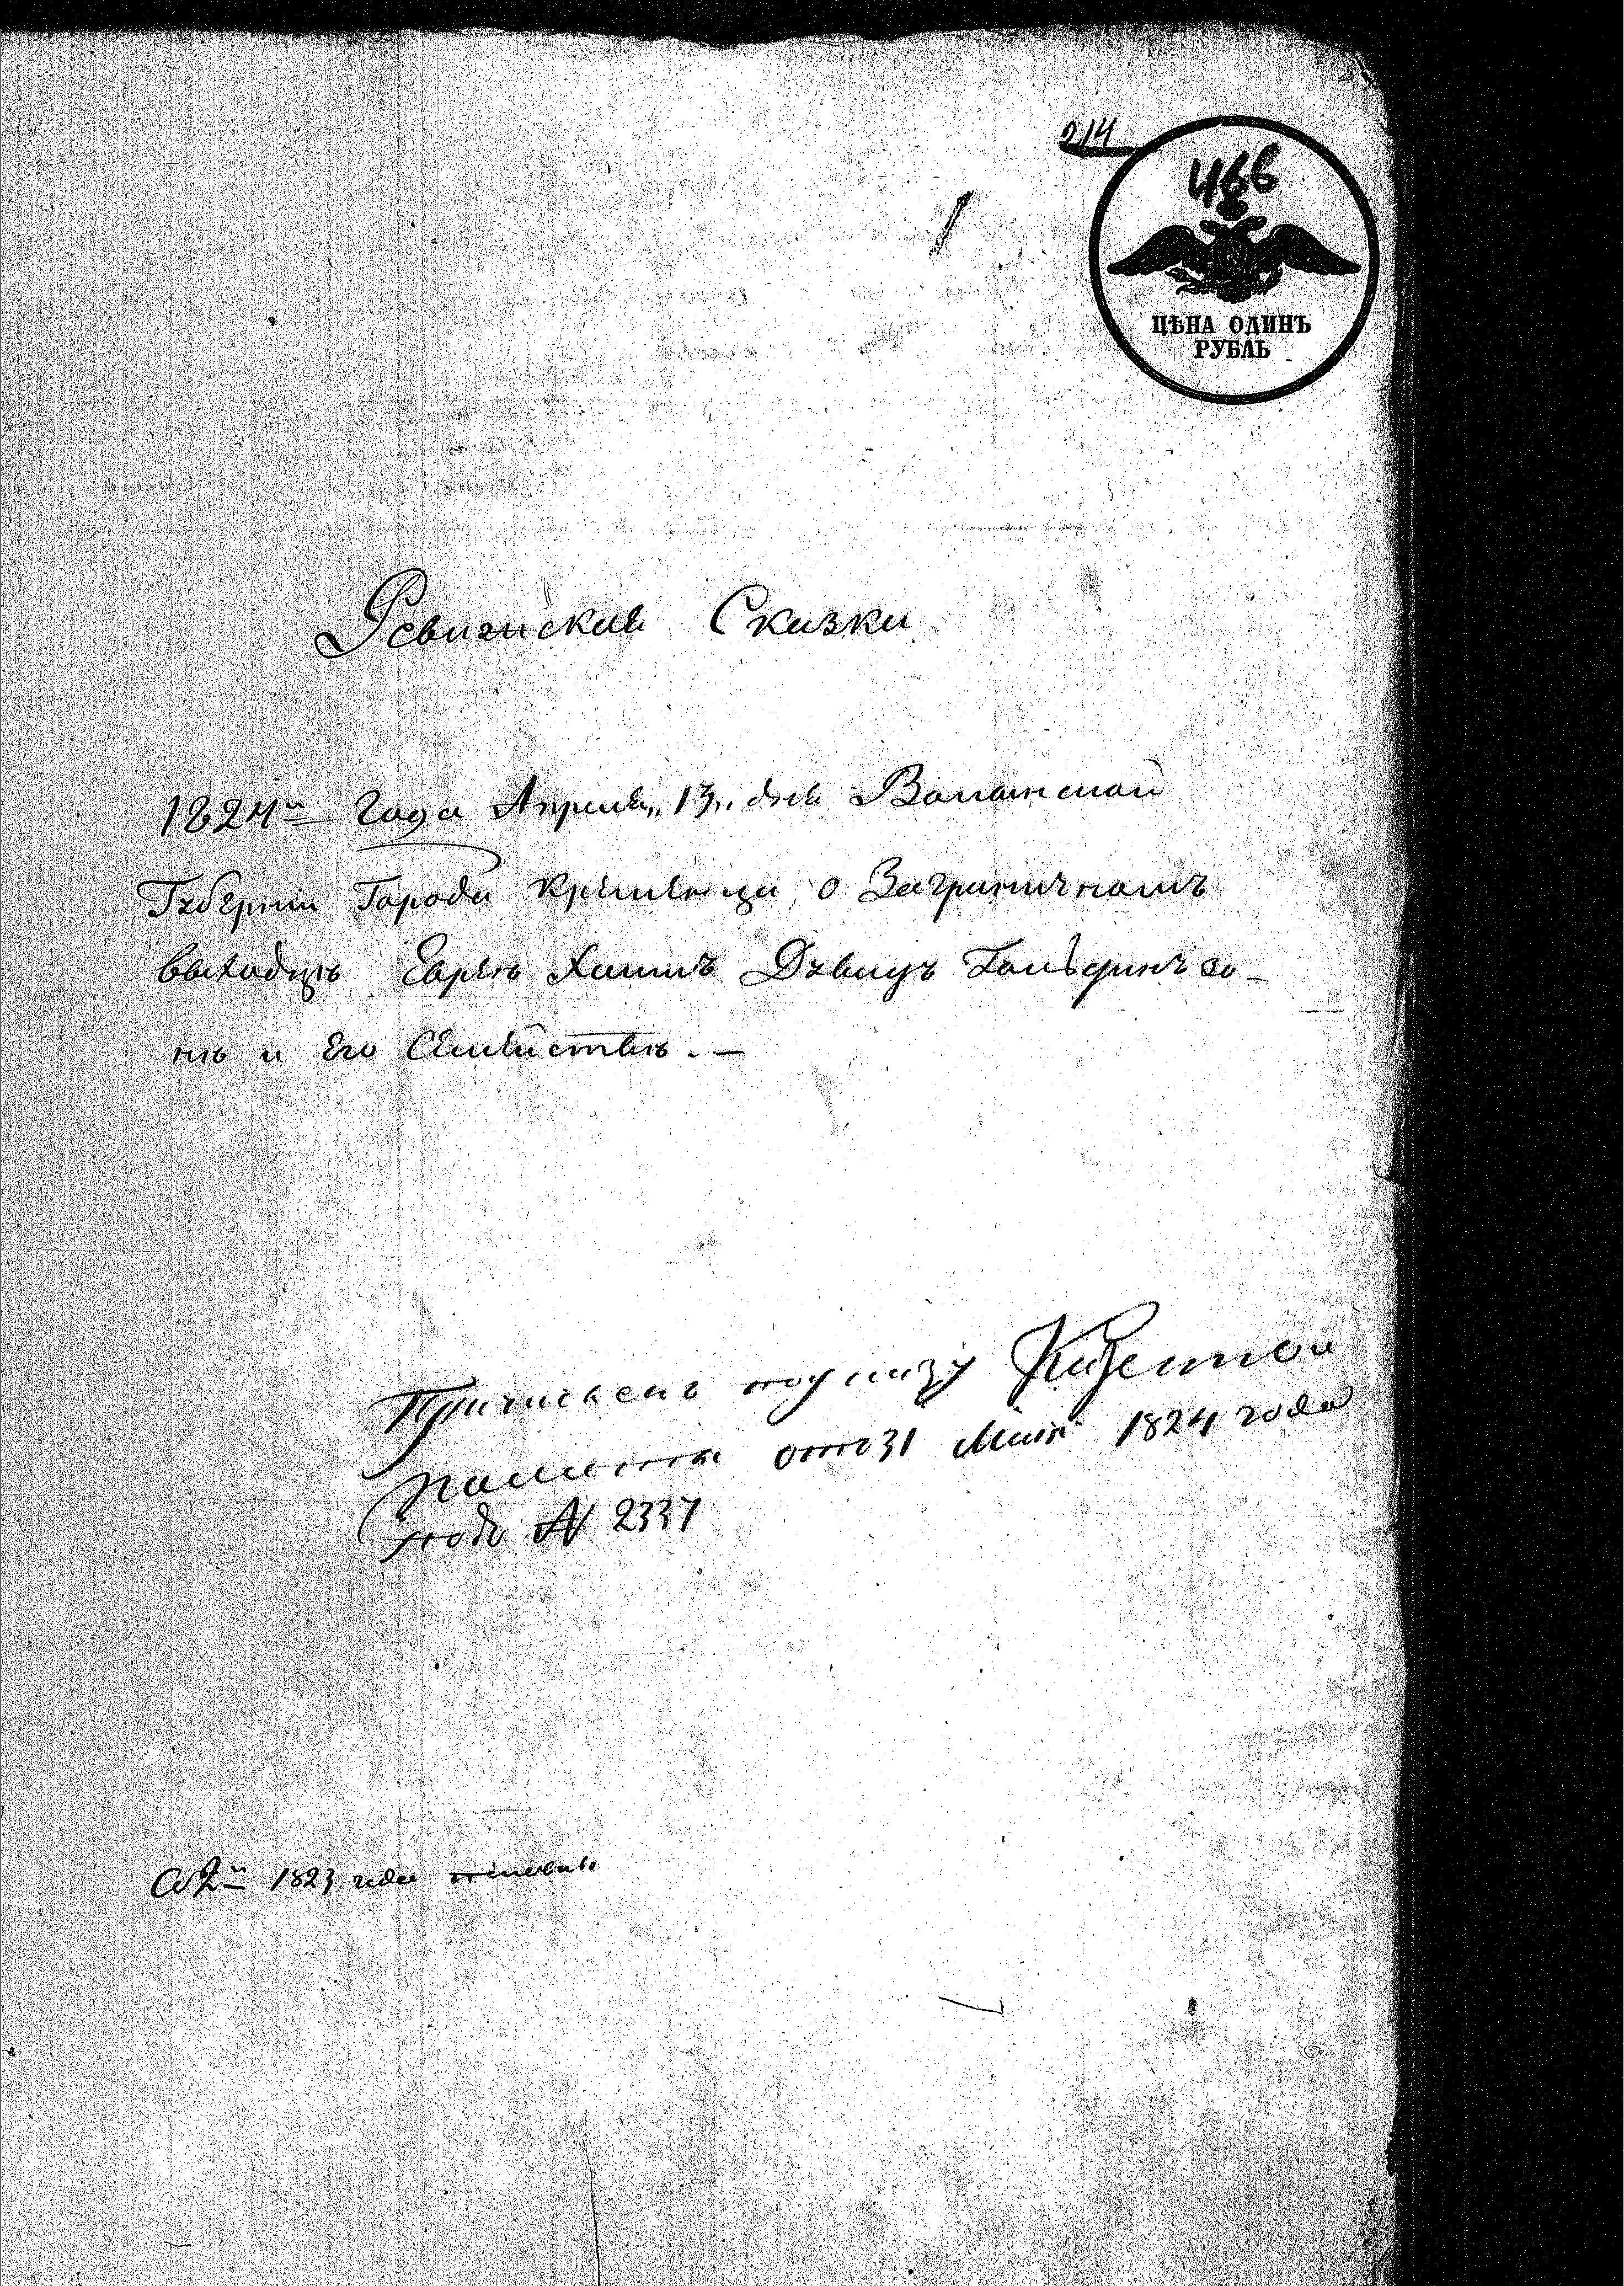 214
466
ЦѢНА ОДИНЪ
РУБЛЬ
Ревизская Сказки
1824го Года Апреля 13 дня Волынской
Губернии Города Кременца, о Заграничномъ
выходцѣ Евреѣ Хаимѣ Давидѣ Гольдринъ зо-
нѣ и Его Семействѣ. —
Причисленъ по указу Казенной
палаты отъ 31 Маия 1824 года
подъ № 2337
Со 2й 1823 года половины